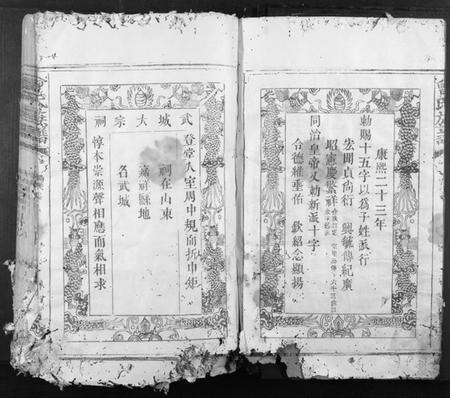 康熙二十三年
勅賜十五字以為子姓派行
宏聞貞尚衍 興毓傳紀廣
昭憲慶繁祥
同治皇帝又勅新派十字
令德維垂佑 欽紹念顯揚
武城大宗祠
登堂入室周中規而折中矩
祠在山東
嘉祥縣地
名武城
惇本崇源聲相應而氣相求